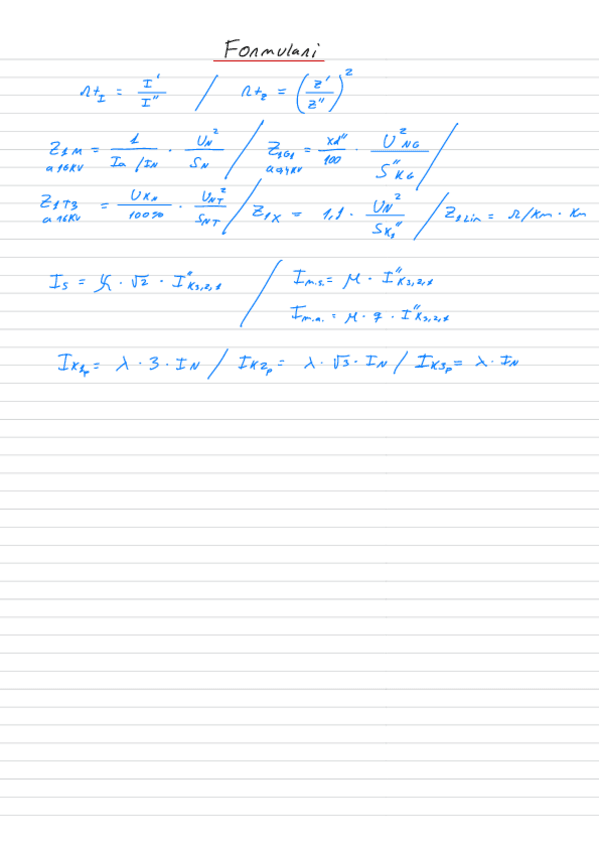 Formulari
rt_I = I' / I'' / rt_z = (z' / z'')²
Z₁M = 1 / Ia/IN · UN² / SN / Z₁G₁ = xd'' / 100 · U²NG / S''KG /
a 16KV a 0,4KV
Z₁T3 = UKn / 100% · UNT² / SNT / Z₁X = 1,1 · UN² / SK₁'' / Z₁Lin = Ω/Km · Km
a 16KV
Is = ϰ · √2 · I''K3,2,1 / Im.s. = μ · I''K3,2,1
Im.a. = μ · q · I''K3,2,1
IK1p = λ · 3 · IN / IK2p = λ · √3 · IN / IK3p = λ · IN